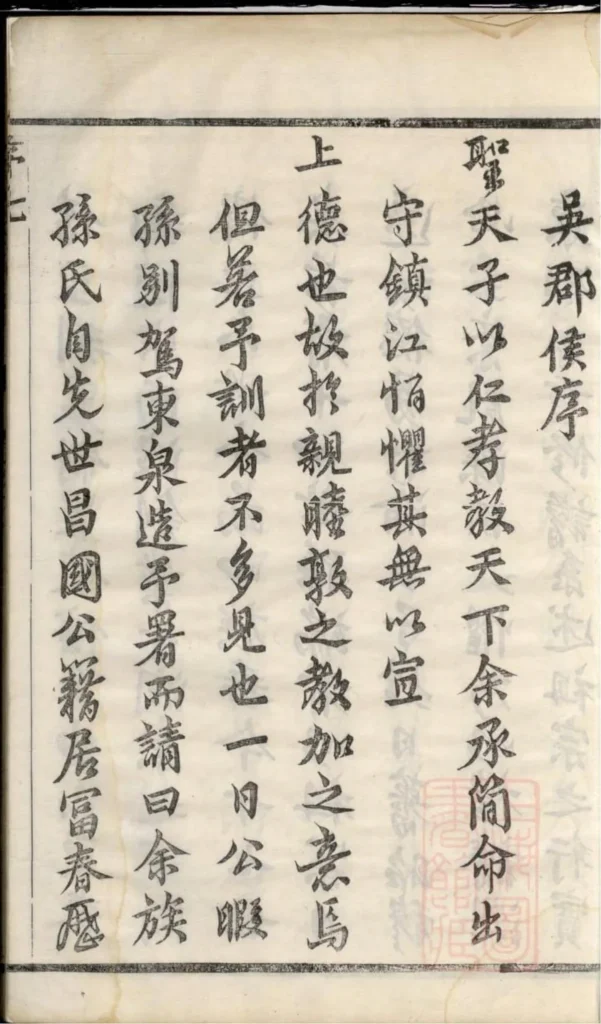 吳郡侯序
聖天子以仁孝教天下余承簡命出
守鎮江怕懼其無以宣
上德也故於親睦敦之教加之意焉
但若予訓者不多見也一日公暇
孫別駕東泉造予署而請曰余族
孫氏自先世昌國公籍居富春歷